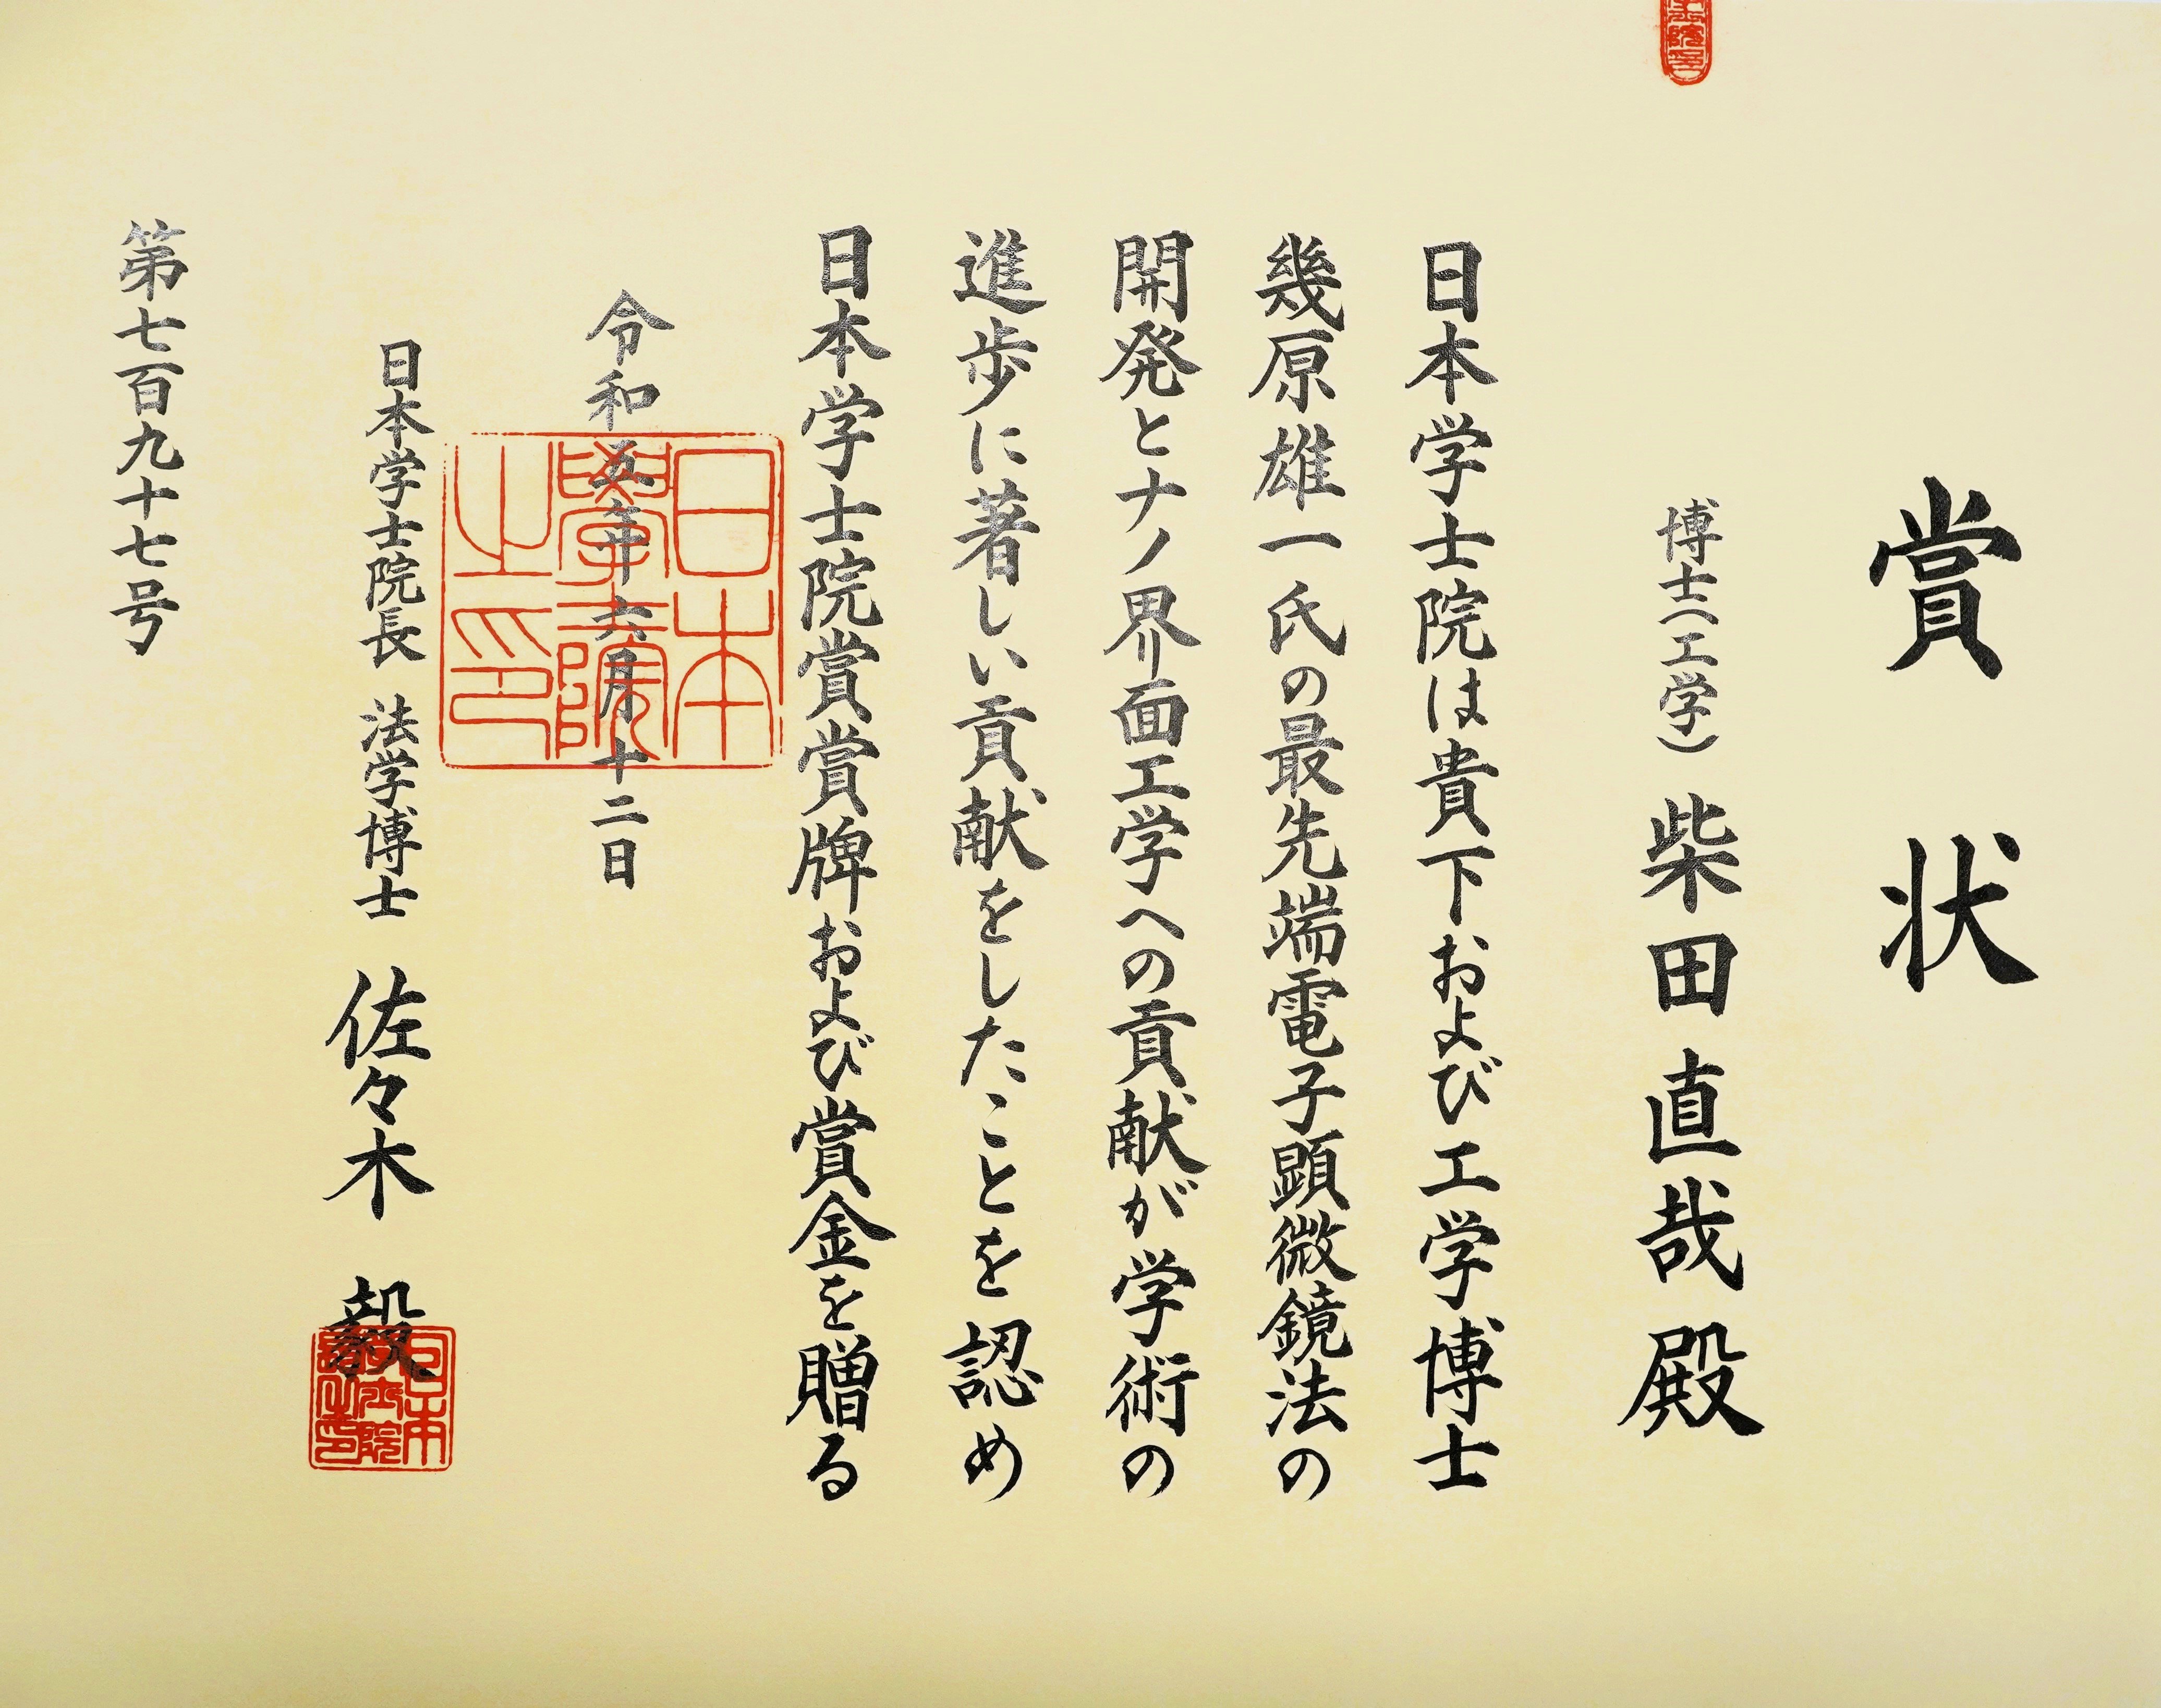 賞状
博士(工学) 柴田直哉殿
日本学士院は貴下および工学博士
幾原雄一氏の最先端電子顕微鏡法の
開発とナノ界面工学への貢献が学術の
進歩に著しい貢献をしたことを認め
日本学士院賞賞牌および賞金を贈る
令和五年六月十二日
日本学士院長 法学博士 佐々木 毅
第七百九十七号
日本
學士院
之印
日本
士院